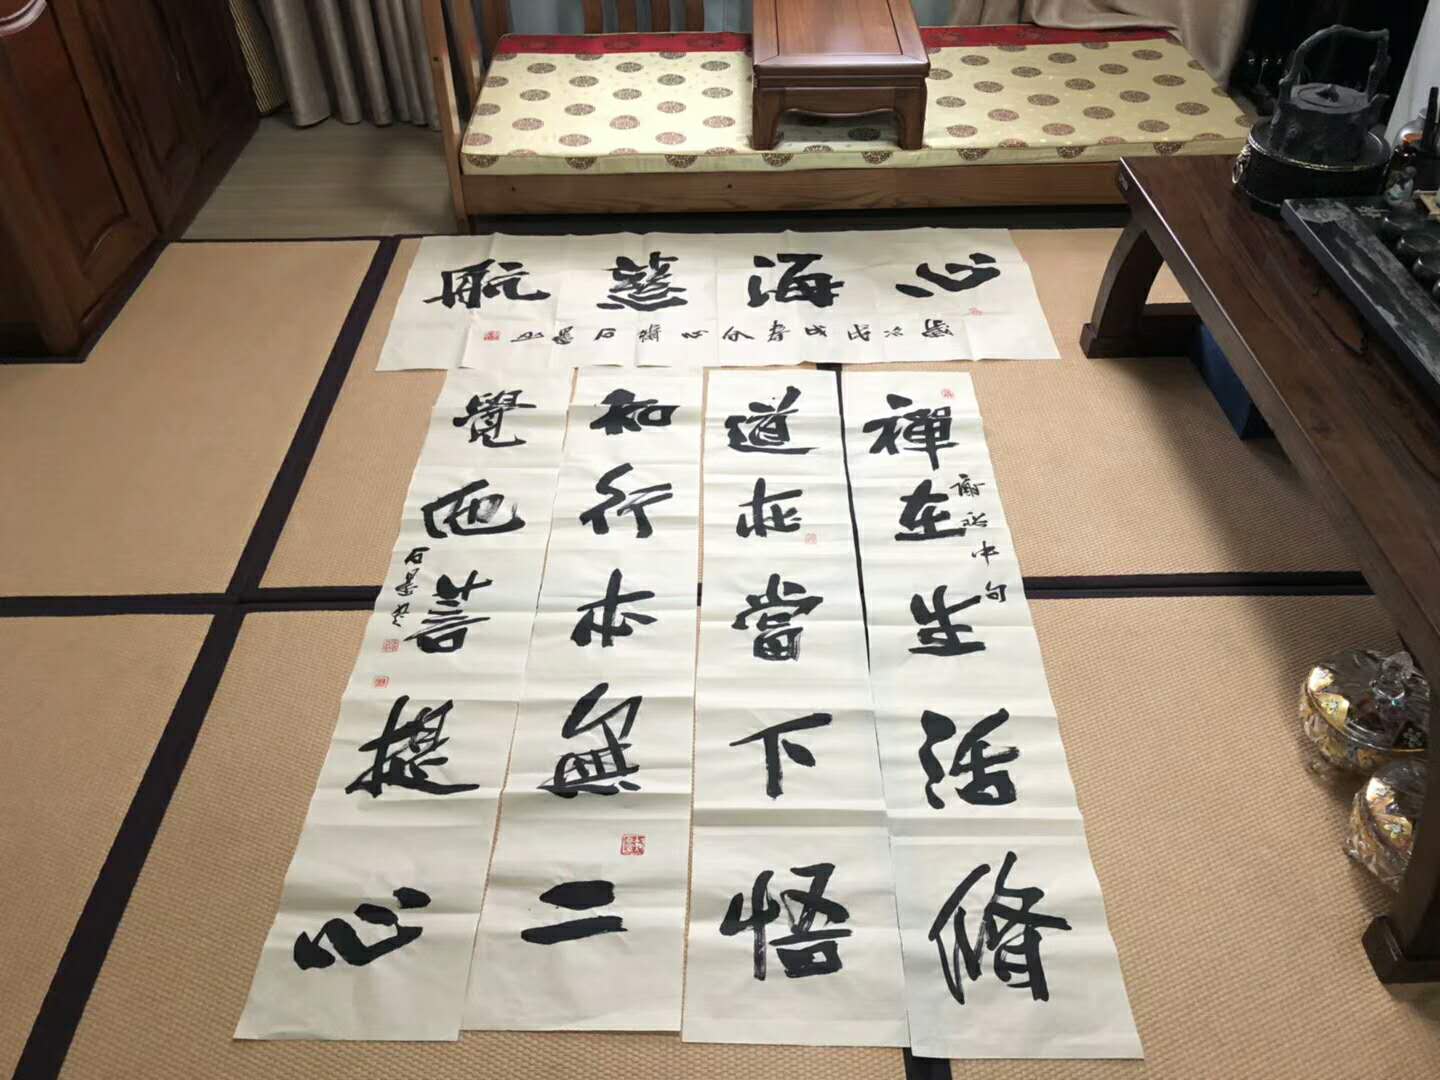 心海慈航
歲次戊戌春 心 石墨
禪在生活修
謝 中句
道亦當下悟
知行本無二
覺 菩提心
石墨書